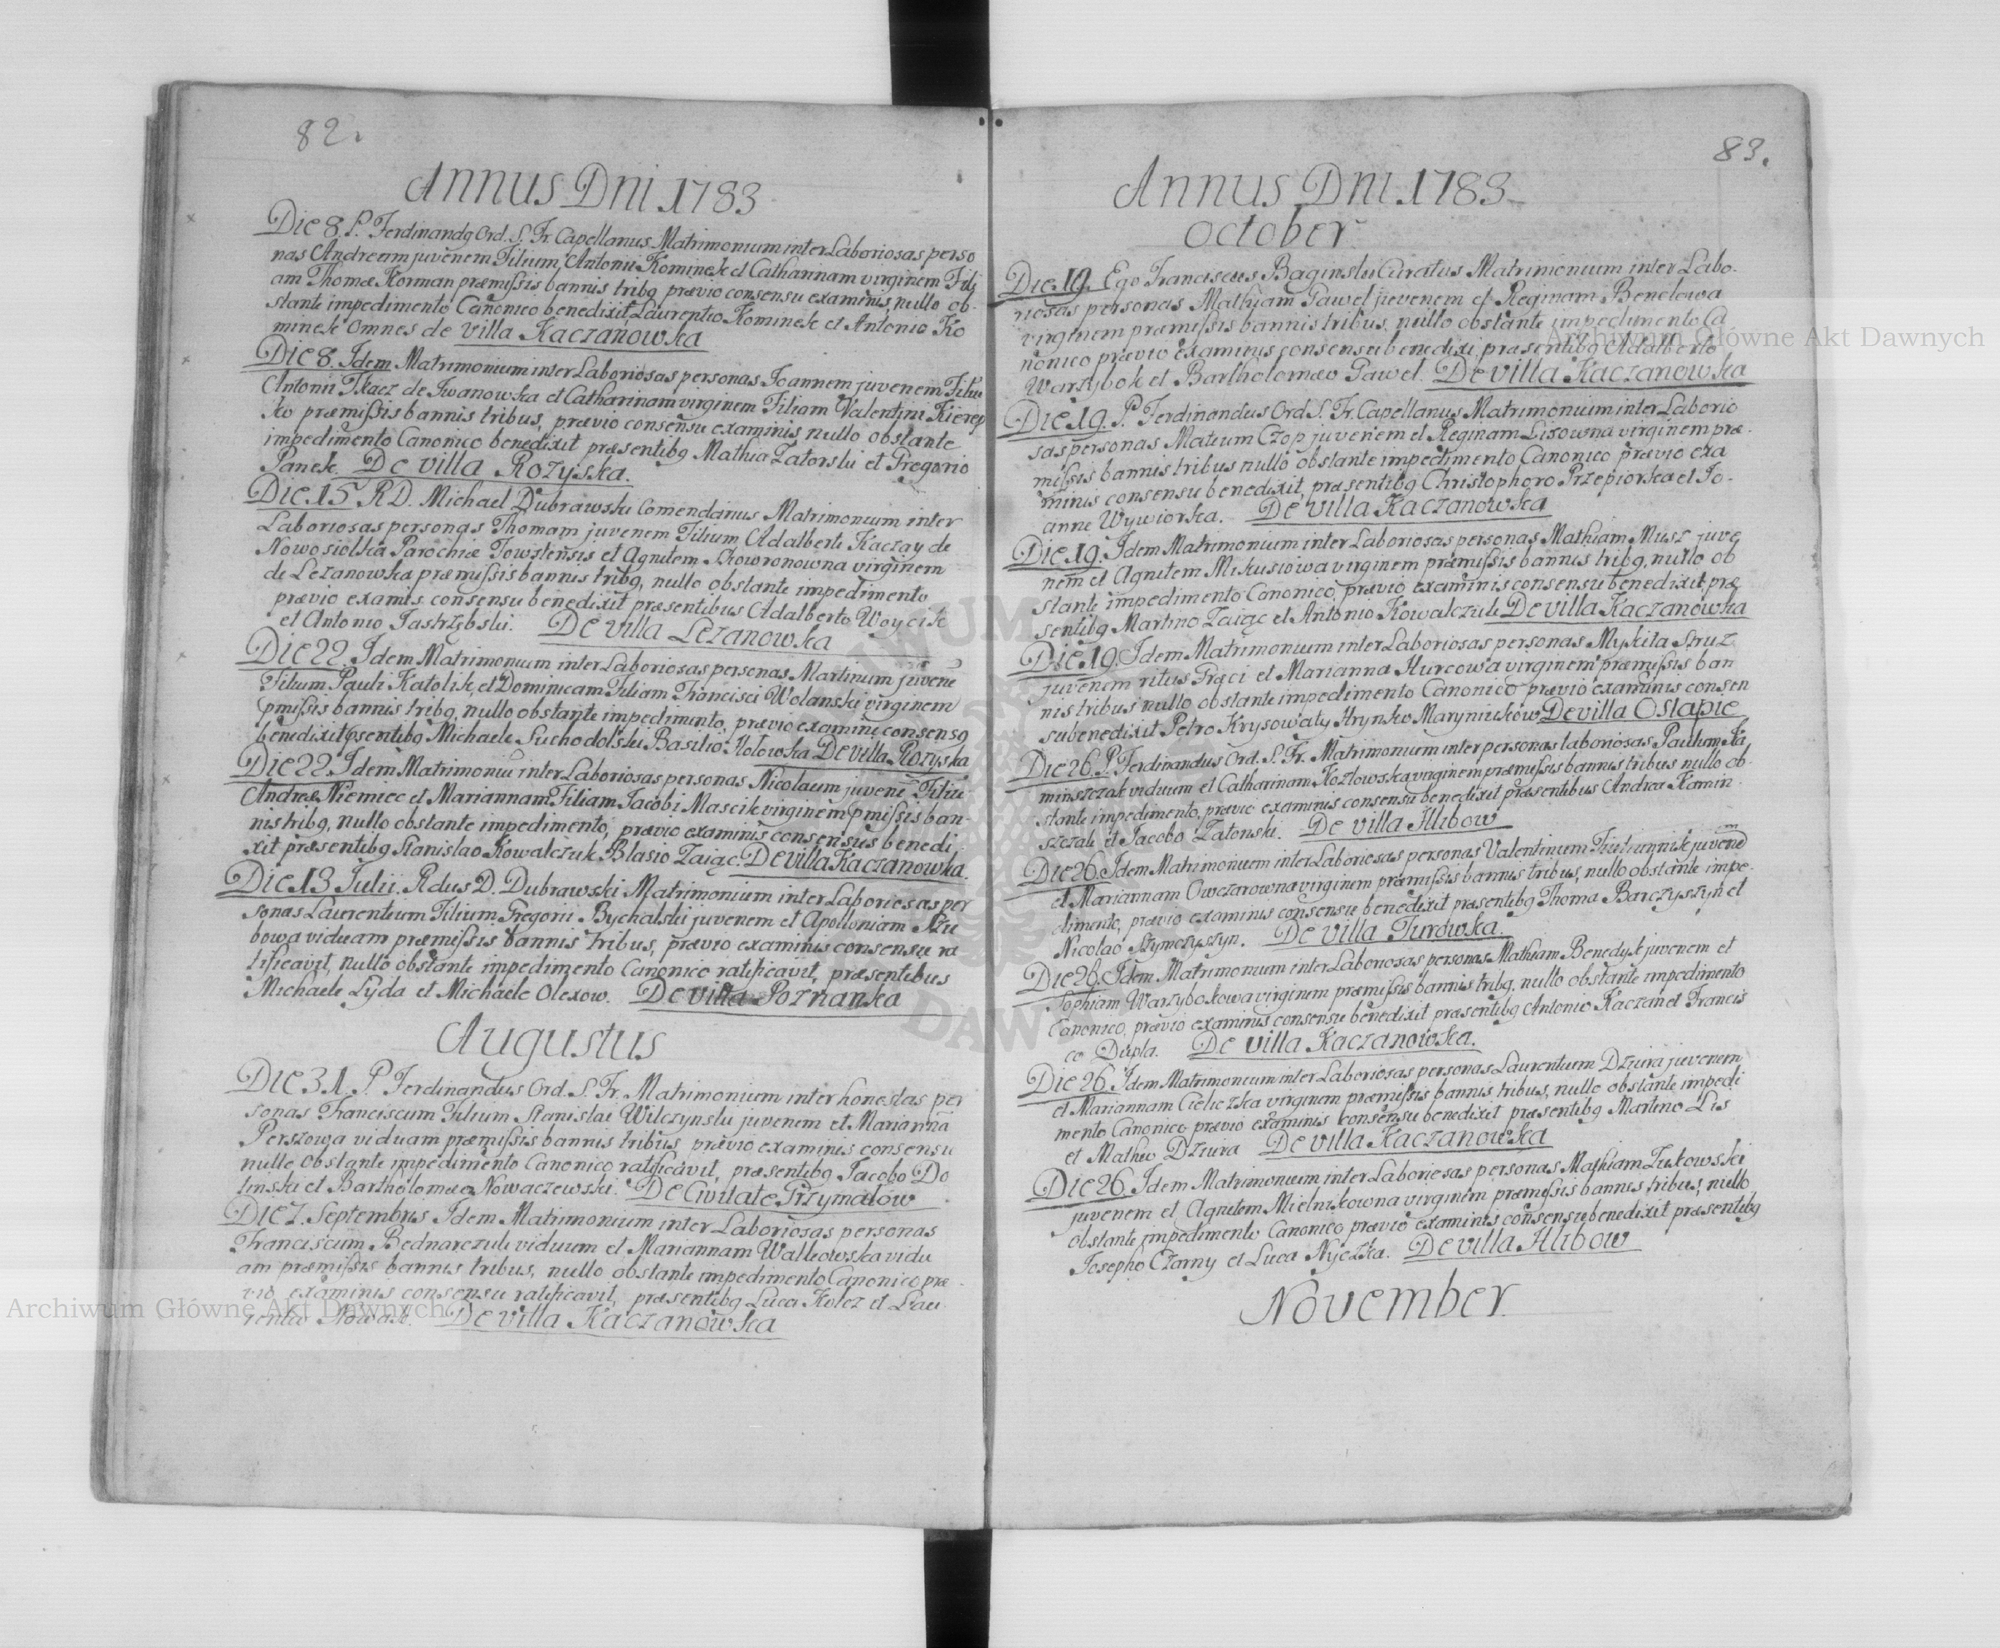 82.
Annus Dni 1783
Die 8. P. Ferdinandq Ord. S. Fr. Capellanus Matrimonium inter Laboriosas perso
nas Andream juvenem Filium Antonii Kominek et Catharinam virginem Fili
am Thomæ Korman præmissis bannis tribq prævio consensu examinis, nullo ob-
stante impedimento Canonico benedixit, Laurentio Kominek et Antonio Ko
minek Omnes de villa Kaczanowka
Die 8. Idem Matrimonium inter Laboriosas personas Joannem juvenem Filiu
Antonii Tkacz de Iwanowka et Catharinam virginem Filiam Valentini
præmissis bannis tribus, prævio consensu examinis nullo obstante
impedimento Canonico benedixit præsentibq Mathia Zatorski et Gregorio
Panek. De villa Rożyska.
Die 15 RD. Michael Dubrawski Comendarius Matrimonium inter
Laboriosas personas Thomam juvenem Filium Adalberti Kaczay de
Nowosiolka Parochiæ Towstensis et Agnetem Skowronowna virginem
de Lezanowka præmissis bannis tribq, nullo obstante impedimento
prævio examis consensu benedixit præsentibus Adalberto Woycik
et Antonio Jastrzębski. De villa Lezanowka
Die 22. Idem Matrimonium inter Laboriosas personas Martinum juvenē
Filium Pauli Katolik, et Dominicam Filiam Francisci Wolanski virginem
pmissis bannis tribq, nullo obstante impedimento, prævio examinis consensq
benedixit psentibq Michaele Suchodolski Basilio Hołowka De villa Rożyska
Die 22. Idem Matrimoniū inter Laboriosas personas Nicolaum juvenē Filiū
Andreæ Niemiec et Mariannam Filiam Jacobi Mascik virginem pmissis ban-
nis tribq, nullo obstante impedimento, prævio examinis consensus benedi
xit præsentibq Stanislao Kowalczuk Blasio Zaiąc. De villa Kaczanowka.
Die 13 Julii. Rdus D. Dubrawski Matrimonium inter Laboriosas per
sonas Laurentium Filium Gregorii Bychalski juvenem et Apolloniam
bowa viduam præmissis bannis tribus, prævio examinis consensu ra
tificavit, nullo obstante impedimento Canonico ratificavit, præsentibus
Michaele Lyda et Michaele Olexow. De villa Poznanka
Augustus
Die 31. P Ferdinandus Ord. S. Fr. Matrimonium inter honestas per
sonas Franciscum Filium Stanislai Wilczynski juvenem et Mariannā
Perszowa viduam præmissis bannis tribus, prævio examinis consensu
nullo obstante impedimento Canonico ratificavit, præsentibq Jacobo Do
linski et Bartholomæo Nowaczewski. De Civitate Grzymałow
Die 7. Septembris Idem Matrimonium inter Laboriosas personas
Franciscum Bednarczuk viduum et Mariannam Walkowska vidu
am præmissis bannis tribus, nullo obstante impedimento Canonico præ-
vio examinis consensu ratificavit, præsentibq Luca Kolcz et Lau
rentio Nowak. De villa Kaczanowka
83.
Annus Dni 1783
October
Die 19. Ego Franciscus Baginski Curatus Matrimonium inter Labo-
riosas personas Mathiam Gawel juvenem et Reginam Benelowa
virginem præmissis bannis tribus, nullo obstante impedimento Ca
nonico prævio examinis consensu benedixi præsentibq Adalberto
Warzybok et Bartholomæo Gawel. De villa Kaczanowka
Die 19. P. Ferdinandus Ord S. Fr. Capellanus Matrimonium inter Laborio
sas personas Mateum Czop juvenem et Reginam Lisowna virginem præ-
missis bannis tribus nullo obstante impedimento Canonico prævio exa
minis consensu benedixit, præsentibq Christophoro Przepiorka et Jo-
anne Wywiorka. De villa Kaczanowka
Die 19. Idem Matrimonium inter Laboriosas personas Mathiam Musz juve
nem et Agnetem Mikusiowa virginem præmissis bannis tribq, nullo ob
stante impedimento Canonico, prævio examinis consensu benedixit, præ
sentibq Martino Zaiąc et Antonio Kowalczuk De villa Kaczanowka
Die 19. Idem Matrimonium inter Laboriosas personas Mykita Struz
juvenem ritus Græci et Marianna Hurcowa virginem præmissis ban
nis tribus nullo obstante impedimento Canonico prævio examinis consen
su benedixit Petro Krysowaty Hrynko Maryniukow De villa Ostapie
Die 26. P. Ferdinandus Ord. S. Fr. Matrimonium inter personas laboriosas Paulum Ka
minszczak viduum et Catharinam Kozlowska virginem præmissis bannis tribus nullo ob-
stante impedimento, prævio examinis consensu benedixit præsentibus Andrea Kamin-
szczak et Jacobo Zatonski. De villa Hlibow
Die 26. Idem Matrimonium inter Laboriosas personas Valentinum juvenem
et Mariannam Owczarowna virginem præmissis bannis tribus, nullo obstante impe-
dimento, prævio examinis consensu benedixit præsentibq Thoma Barczyszyn et
Nicolao Szymczyszyn. De villa Turowka.
Die 26. Idem Matrimonium inter Laboriosas personas Mathiam Benedyk juvenem et
Sophiam Warzybokowa virginem præmissis bannis tribq, nullo obstante impedimento
Canonico, prævio examinis consensu benedixit præsentibq Antonio Kaczan et Francis
co Dupla. De villa Kaczanowka.
Die 26. Idem Matrimonium inter Laboriosas personas Laurentium Dziura juvenem
et Mariannam Cieliczka virginem præmissis bannis tribus, nullo obstante impedi
mento Canonico prævio examinis konsensu benedixit præsentibq Martino Lis
et Matheo Dziura De villa Kaczanowka
Die 26. Idem Matrimonium inter Laboriosas personas Mathiam Zukowski
juvenem et Agnetem Mielnikowna virginem præmissis bannis tribus, nullo
obstante impedimento Canonico, prævio examinis consensu benedixit præsentibq
Josepho Czarny et Luca Nyczka. De villa Hlibow
November.
Archiwum Główne Akt Dawnych
Archiwum Główne Akt Dawnych